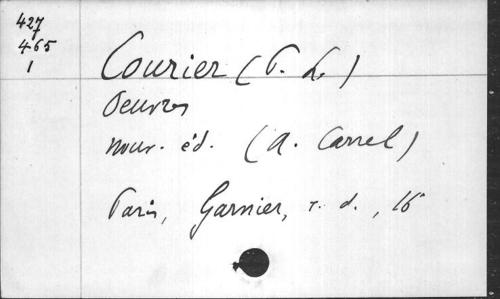 427
465
1
Courier (P. L.)
Oeuvres
nouv. éd. (A. Carrel)
Paris, Garnier, s. d., 16°